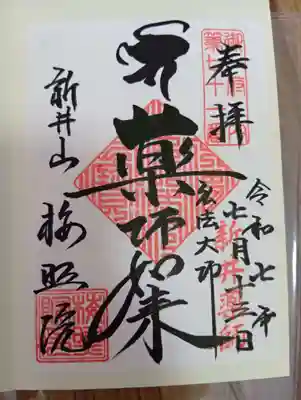 奉拝
令和七年
七月十三日
新井薬師
弘法大師
薬師如来
新井山
梅照院